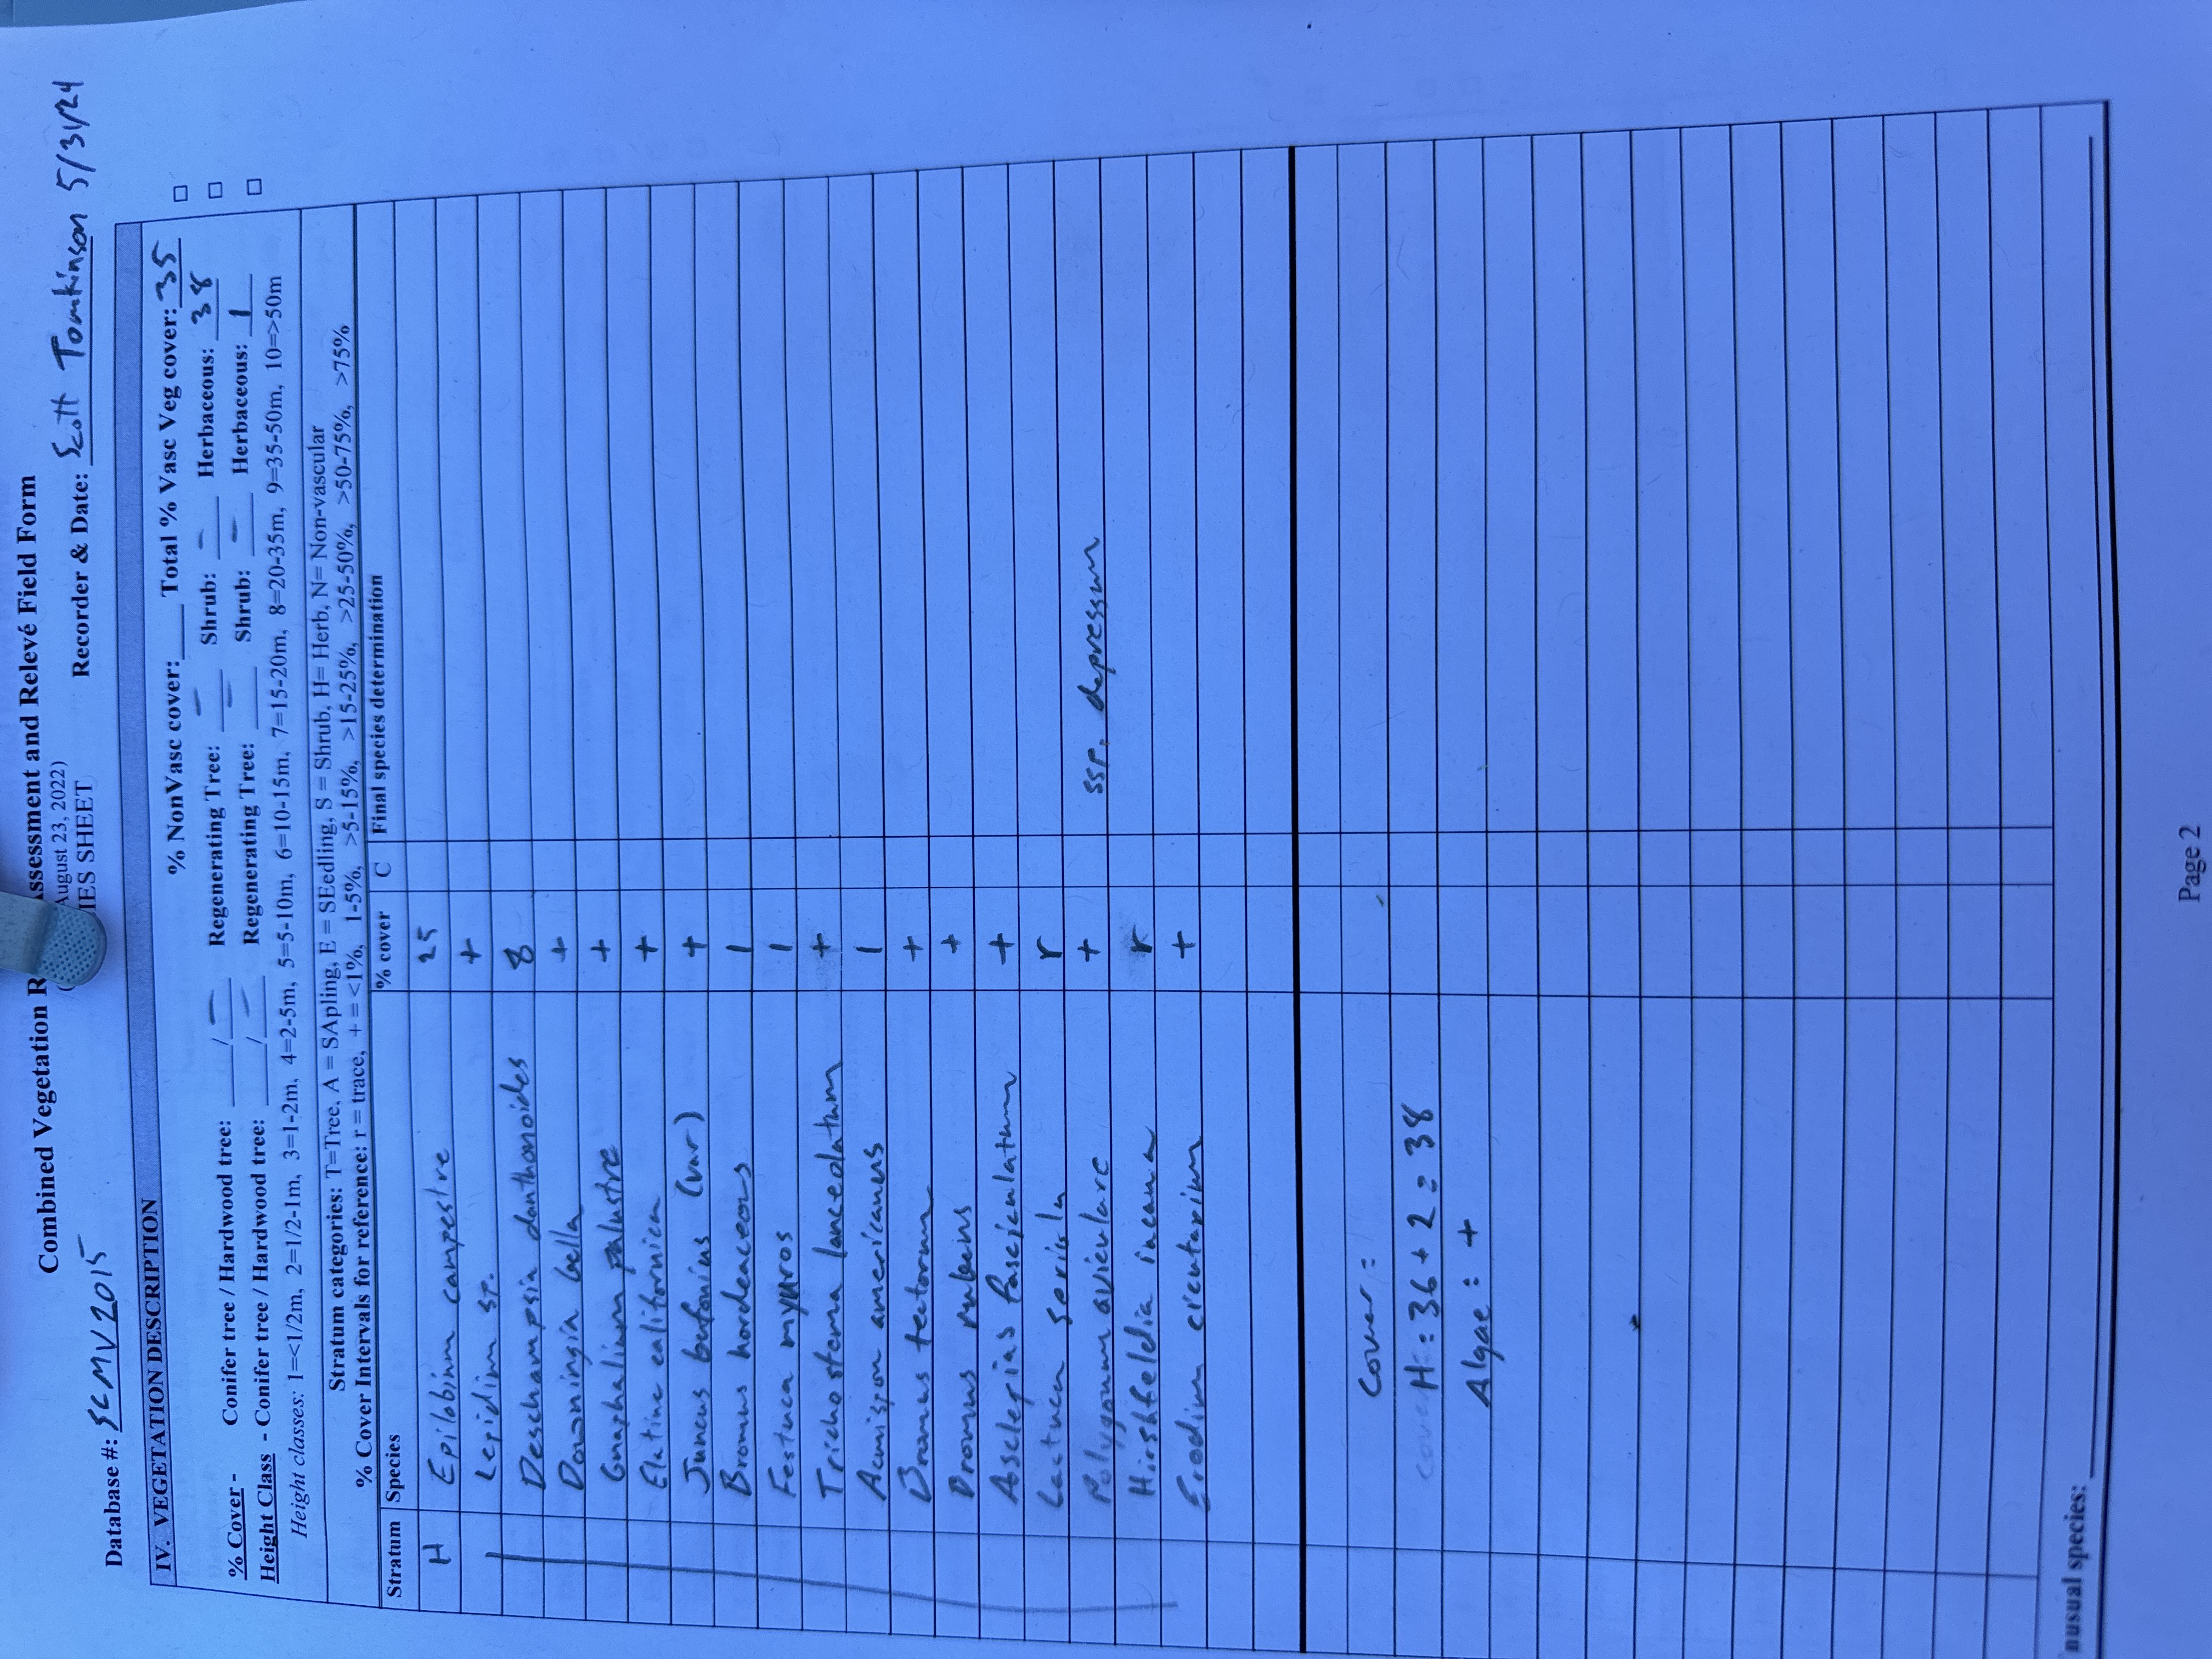 Combined Vegetation R Assessment and Relevé Field Form
(August 23, 2022)
IES SHEET
Database #: SCMV2015 Recorder & Date: Scott Tomkinson 5/31/24
IV. VEGETATION DESCRIPTION
% NonVasc cover:____ Total % Vasc Veg cover: 35 □
% Cover - Conifer tree / Hardwood tree: ____/ – Regenerating Tree: – Shrub: – Herbaceous: 38 □
Height Class - Conifer tree / Hardwood tree: ____/ – Regenerating Tree: – Shrub: – Herbaceous: 1 □
Height classes: 1=<1/2m, 2=1/2-1m, 3=1-2m, 4=2-5m, 5=5-10m, 6=10-15m, 7=15-20m, 8=20-35m, 9=35-50m, 10=>50m
Stratum categories: T=Tree, A = SApling, E = SEedling, S = Shrub, H= Herb, N= Non-vascular
% Cover Intervals for reference: r = trace, + = <1%, 1-5%, >5-15%, >15-25%, >25-50%, >50-75%, >75%
Stratum Species % cover C Final species determination
H Epilobium campestre 25
Lepidium sp. +
Deschampsia danthonoides 8
Downingia bella +
Gnaphalium palustre +
Elatine californica +
Juncus bufonius (var) +
Bromus hordeaceous 1
Festuca myuros 1
Trichostema lanceolatum +
Acmispon americanus 1
Bromus tectorum +
Bromus rubens +
Asclepias fasciculatum +
Lactuca seriola r
Polygonum aviculare + ssp. depressum
Hirshfeldia incana r
Erodium cicutarium +
Cover:
cover H: 36 + 2 = 38
Algae: +
nusual species:
Page 2